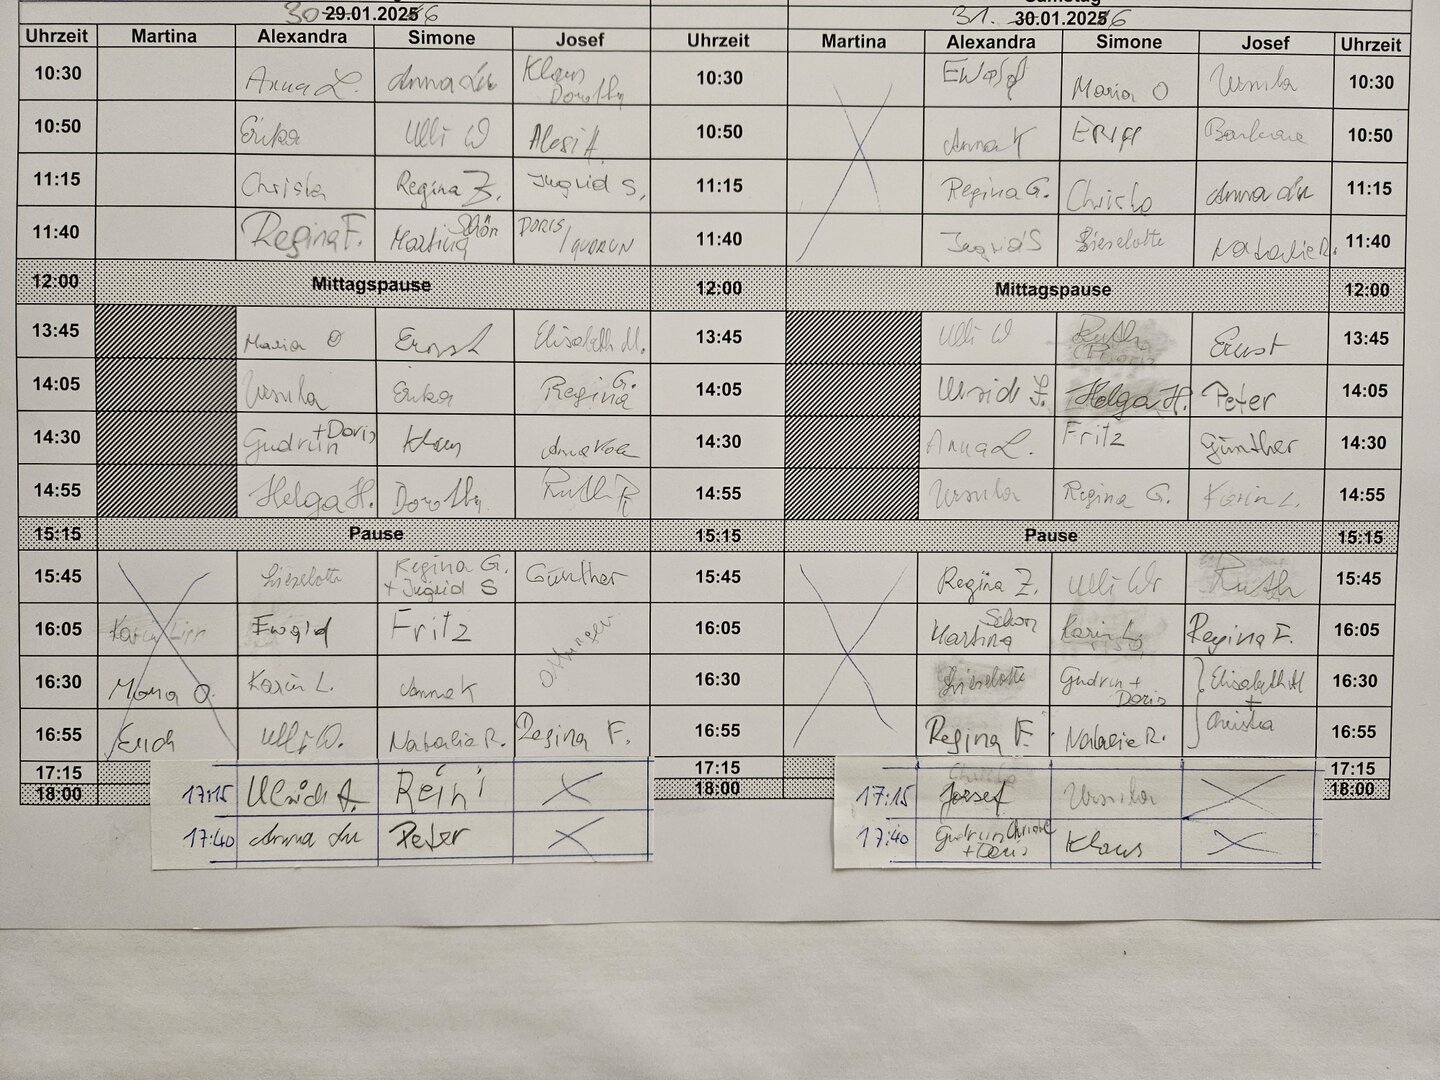 30 29.01.2025 6
31. 30.01.2025 6
Uhrzeit Martina Alexandra Simone Josef Uhrzeit Martina Alexandra Simone Josef Uhrzeit
10:30 Anna L. Anna Lu Klaus Dorothy 10:30 Ewald Maria O Ursula 10:30
10:50 Erika Ulli W Alosi A. 10:50 Anna K Erika Barbara 10:50
11:15 Christa Regina Z. Ingrid S. 11:15 Regina G. Christa Anna Lu 11:15
11:40 Regina F. Martina Schön DORIS/GUDRUN 11:40 Ingrid S Lieselotte Natalie R. 11:40
12:00 Mittagspause 12:00 Mittagspause 12:00
13:45 Maria O Ernst Elisabeth M. 13:45 Ulli W Ruth Ernst 13:45
14:05 Ursula Erika Regina G. 14:05 Helga H. Peter 14:05
14:30 Gudrun + Doris Klaus Anna 14:30 Anna L. Fritz Günther 14:30
14:55 Helga H. Dorothy Ruth R 14:55 Ursula Regina G. Karin L. 14:55
15:15 Pause 15:15 Pause 15:15
15:45 Lieselotte Regina G. + Ingrid S Günther 15:45 Regina Z. Ulli W Ruth 15:45
16:05 Karin Ewald Fritz 16:05 Martina Schön Karin L. Regina F. 16:05
16:30 Maria O. Karin L. Anna K 16:30 Lieselotte Gudrun + Doris Elisabeth M 16:30
+
16:55 Erich Ulli W. Natalie R. Regina F. 16:55 Regina F. Natalie R. Christa 16:55
17:15 17:15 17:15
18:00 18:00 18:00
17:15 Ulrich A. Reini X 17:15 Josef Ursula X
17:40 Anna Lu Peter X 17:40 Gudrun + Doris Klaus X